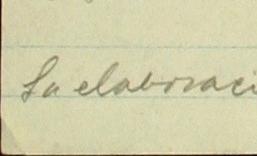 La elaboraci